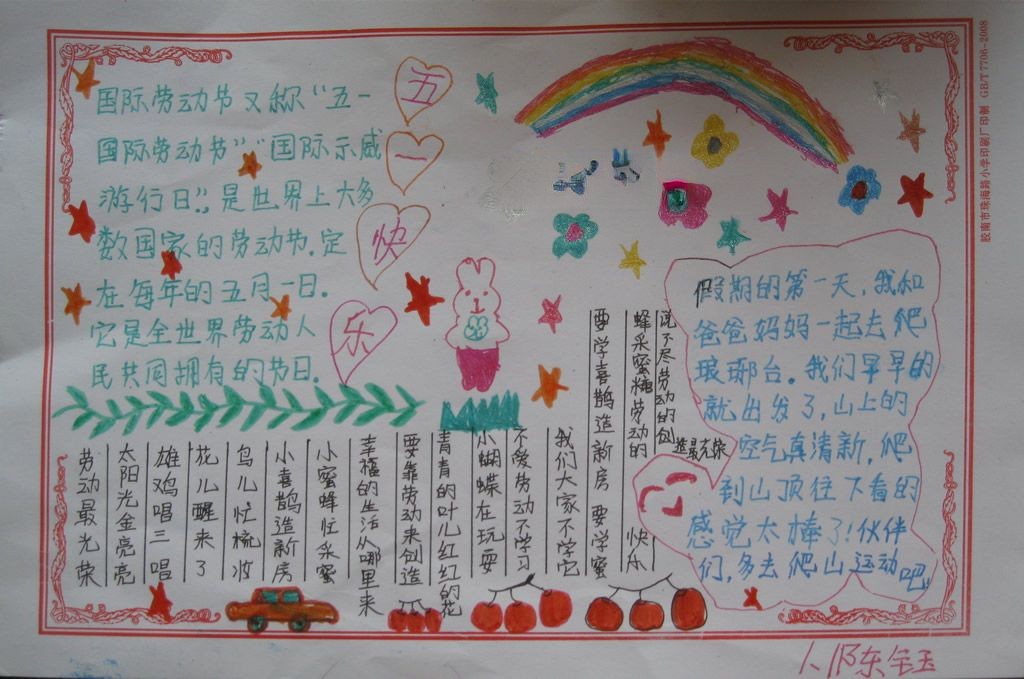 国际劳动节又称“五一
国际劳动节”“国际示威
游行日”,是世界上大多
数国家的劳动节.定
在每年的五月一日.
它是全世界劳动人
民共同拥有的节日.
五
一
快
乐
假期的第一天,我和
爸爸妈妈一起去爬
琅琊台。我们早早的
就出发了,山上的
空气真清新,爬
到山顶往下看的
感觉太棒了!伙伴
们,多去爬山运动吧
劳动最光荣
太阳光金亮亮
雄鸡唱三唱
花儿醒来了
鸟儿忙梳妆
小喜鹊造新房
小蜜蜂忙采蜜
幸福的生活从哪里来
要靠劳动来创造
青青的叶儿红红的花
小蝴蝶在玩耍
不爱劳动不学习
我们大家不学它
要学喜鹊造新房 要学蜜
蜂采蜜糖劳动的 快乐
说不尽劳动的创
造最光荣
陈宝玉
GB/T7705-2008